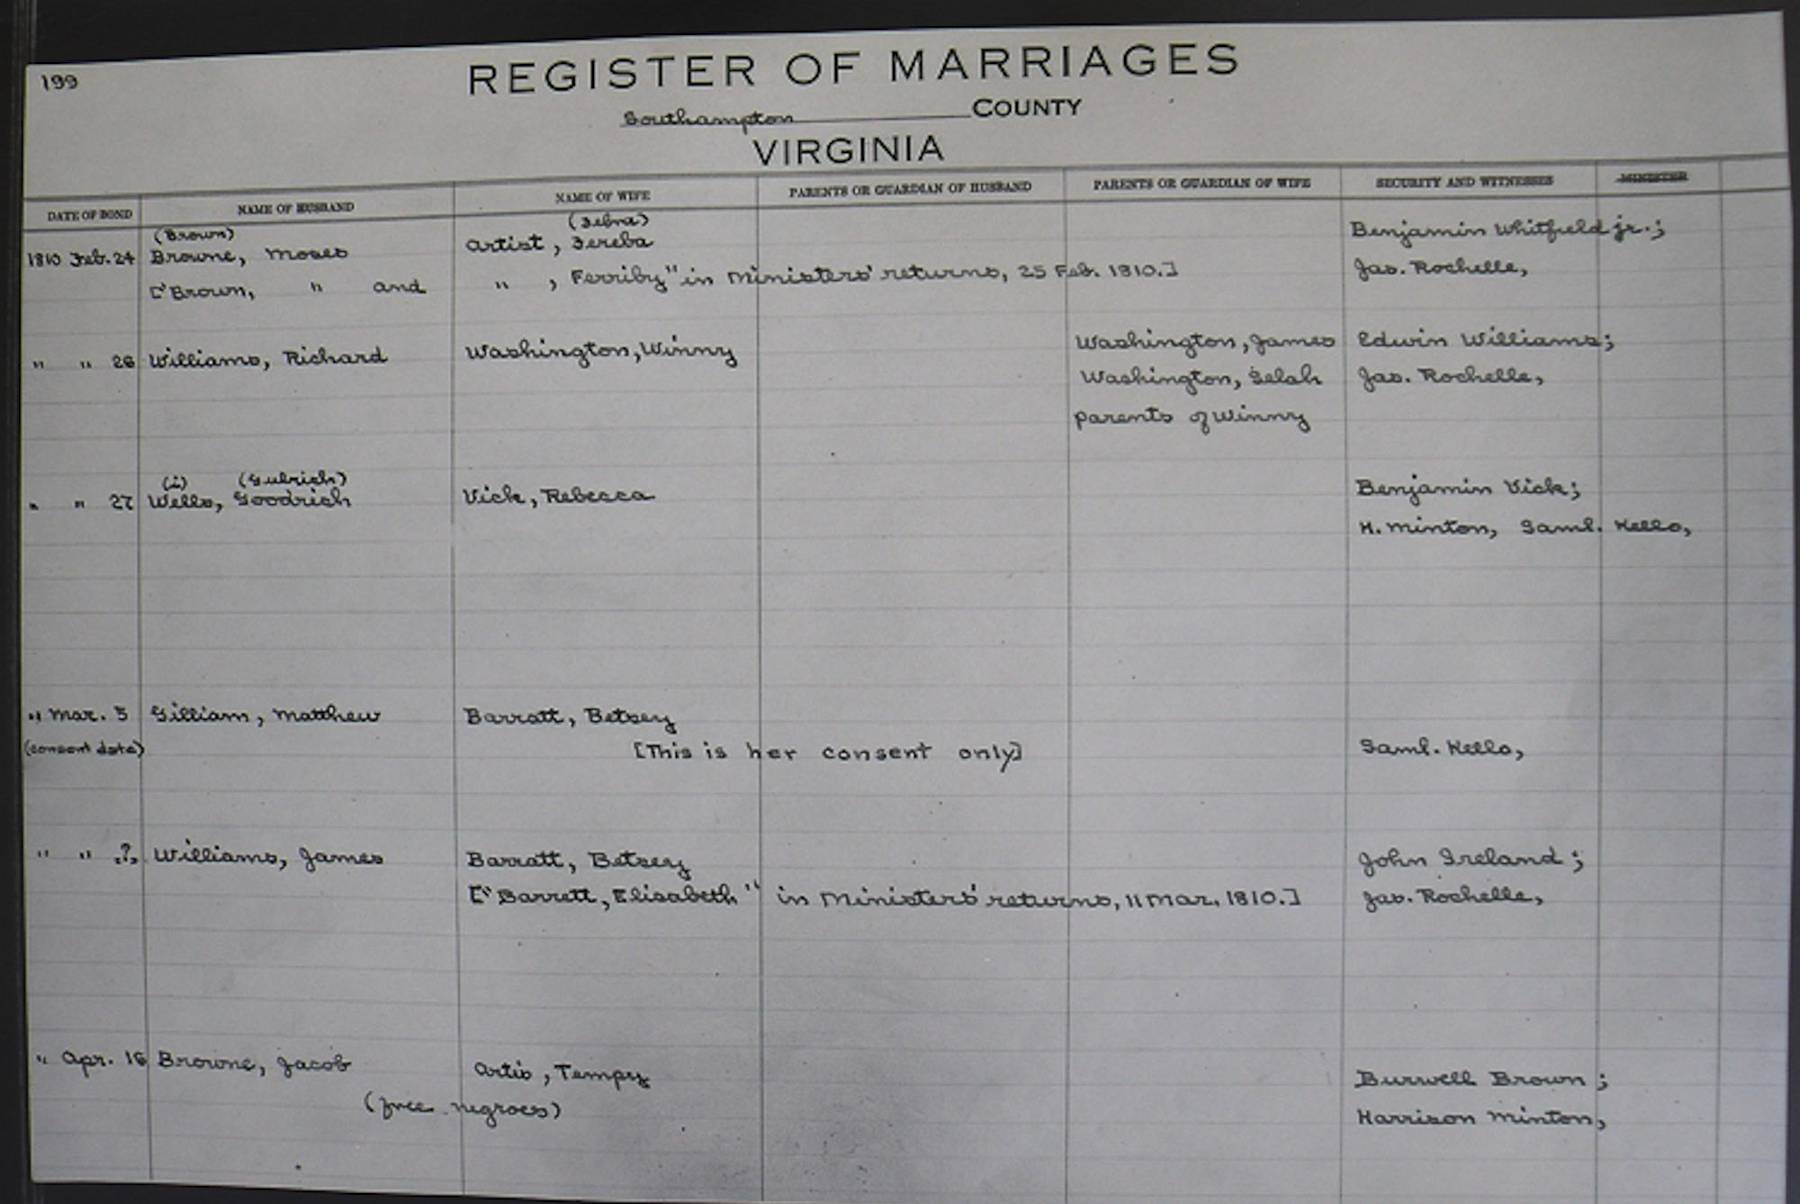 199
REGISTER OF MARRIAGES
Southampton COUNTY
VIRGINIA
DATE OF BOND NAME OF HUSBAND NAME OF WIFE PARENTS OR GUARDIAN OF HUSBAND PARENTS OR GUARDIAN OF WIFE SECURITY AND WITNESSES MINISTER
(Brown) (Febra)
1810 Feb. 24 Browne, Moses Artist, Fereba Benjamin Whitfield jr.;
["Brown, " and " , Ferriby" in Ministers' returns, 25 Feb. 1810.] Jas. Rochelle,
" " 26 Williams, Richard Washington, Winny Washington, James Edwin Williams;
Washington, Selah Jas. Rochelle,
parents of Winny
(i) (Gulrich)
" " 27 Wells, Goodrich Vick, Rebecca Benjamin Vick;
H. Minton, Saml. Kello,
" Mar. 5 Gilliam, Matthew Barratt, Betsey
(consent date) [This is her consent only] Saml. Kello,
" " ? Williams, James Barratt, Betsey John Ireland;
["Barrett, Elisabeth" in Ministers' returns, 11 Mar. 1810.] Jas. Rochelle,
" Apr. 16 Browne, Jacob Artis, Tempy Burwell Brown;
(free negroes) Harrison Minton,